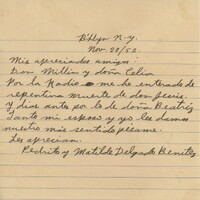 Bklyn N.Y.
Nov. 28/52
Mis apreciados amigos:
Don Millin y doña Celia
Por la Radio me he enterado de
repentina muerte de don Jesús
y dias ante por lo de doña Beatriz
Tanto mi esposo y yo les damos
nuestro más sentido pésame.
Les aprecian:
Pedrito y Matilde Delgado Benítez